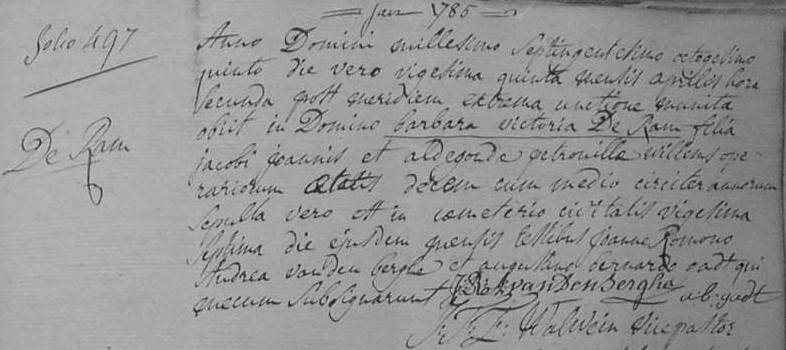 jaer 1785
folio 497
De Ram
Anno Domini millesimo septingentesimo octogesimo
quinto die vero vigesima quinta mensis aprilis hora
secunda post meridiem extrema unctione munita
obiit in Domino barbara victoria De Ram filia
jacobi joannis et aldegonde petronilla willems ope-
rariorum Ætatis decem cum medio circiter annorum
sepulta vero est in cœmeterio civitatis vigesima
septima die ejusdem mensis testibus joanne Romono
Andrea van den berghe et augustino bernardo oadt qui
mecum subsignarunt van Den Berghe
vicepastor